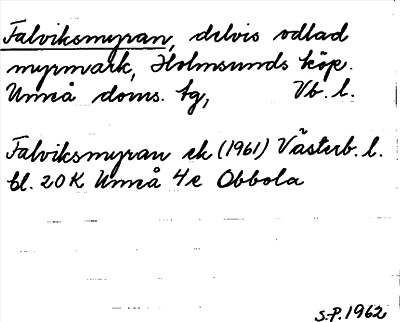 Falviksmyran, delvis odlad
myrmark, Holmsunds köp.
Umeå doms. tg, Vb. l.
Falviksmyran ek (1961) Västerb. l.
bl. 20 K Umeå 4e Obbola
S.P. 1962